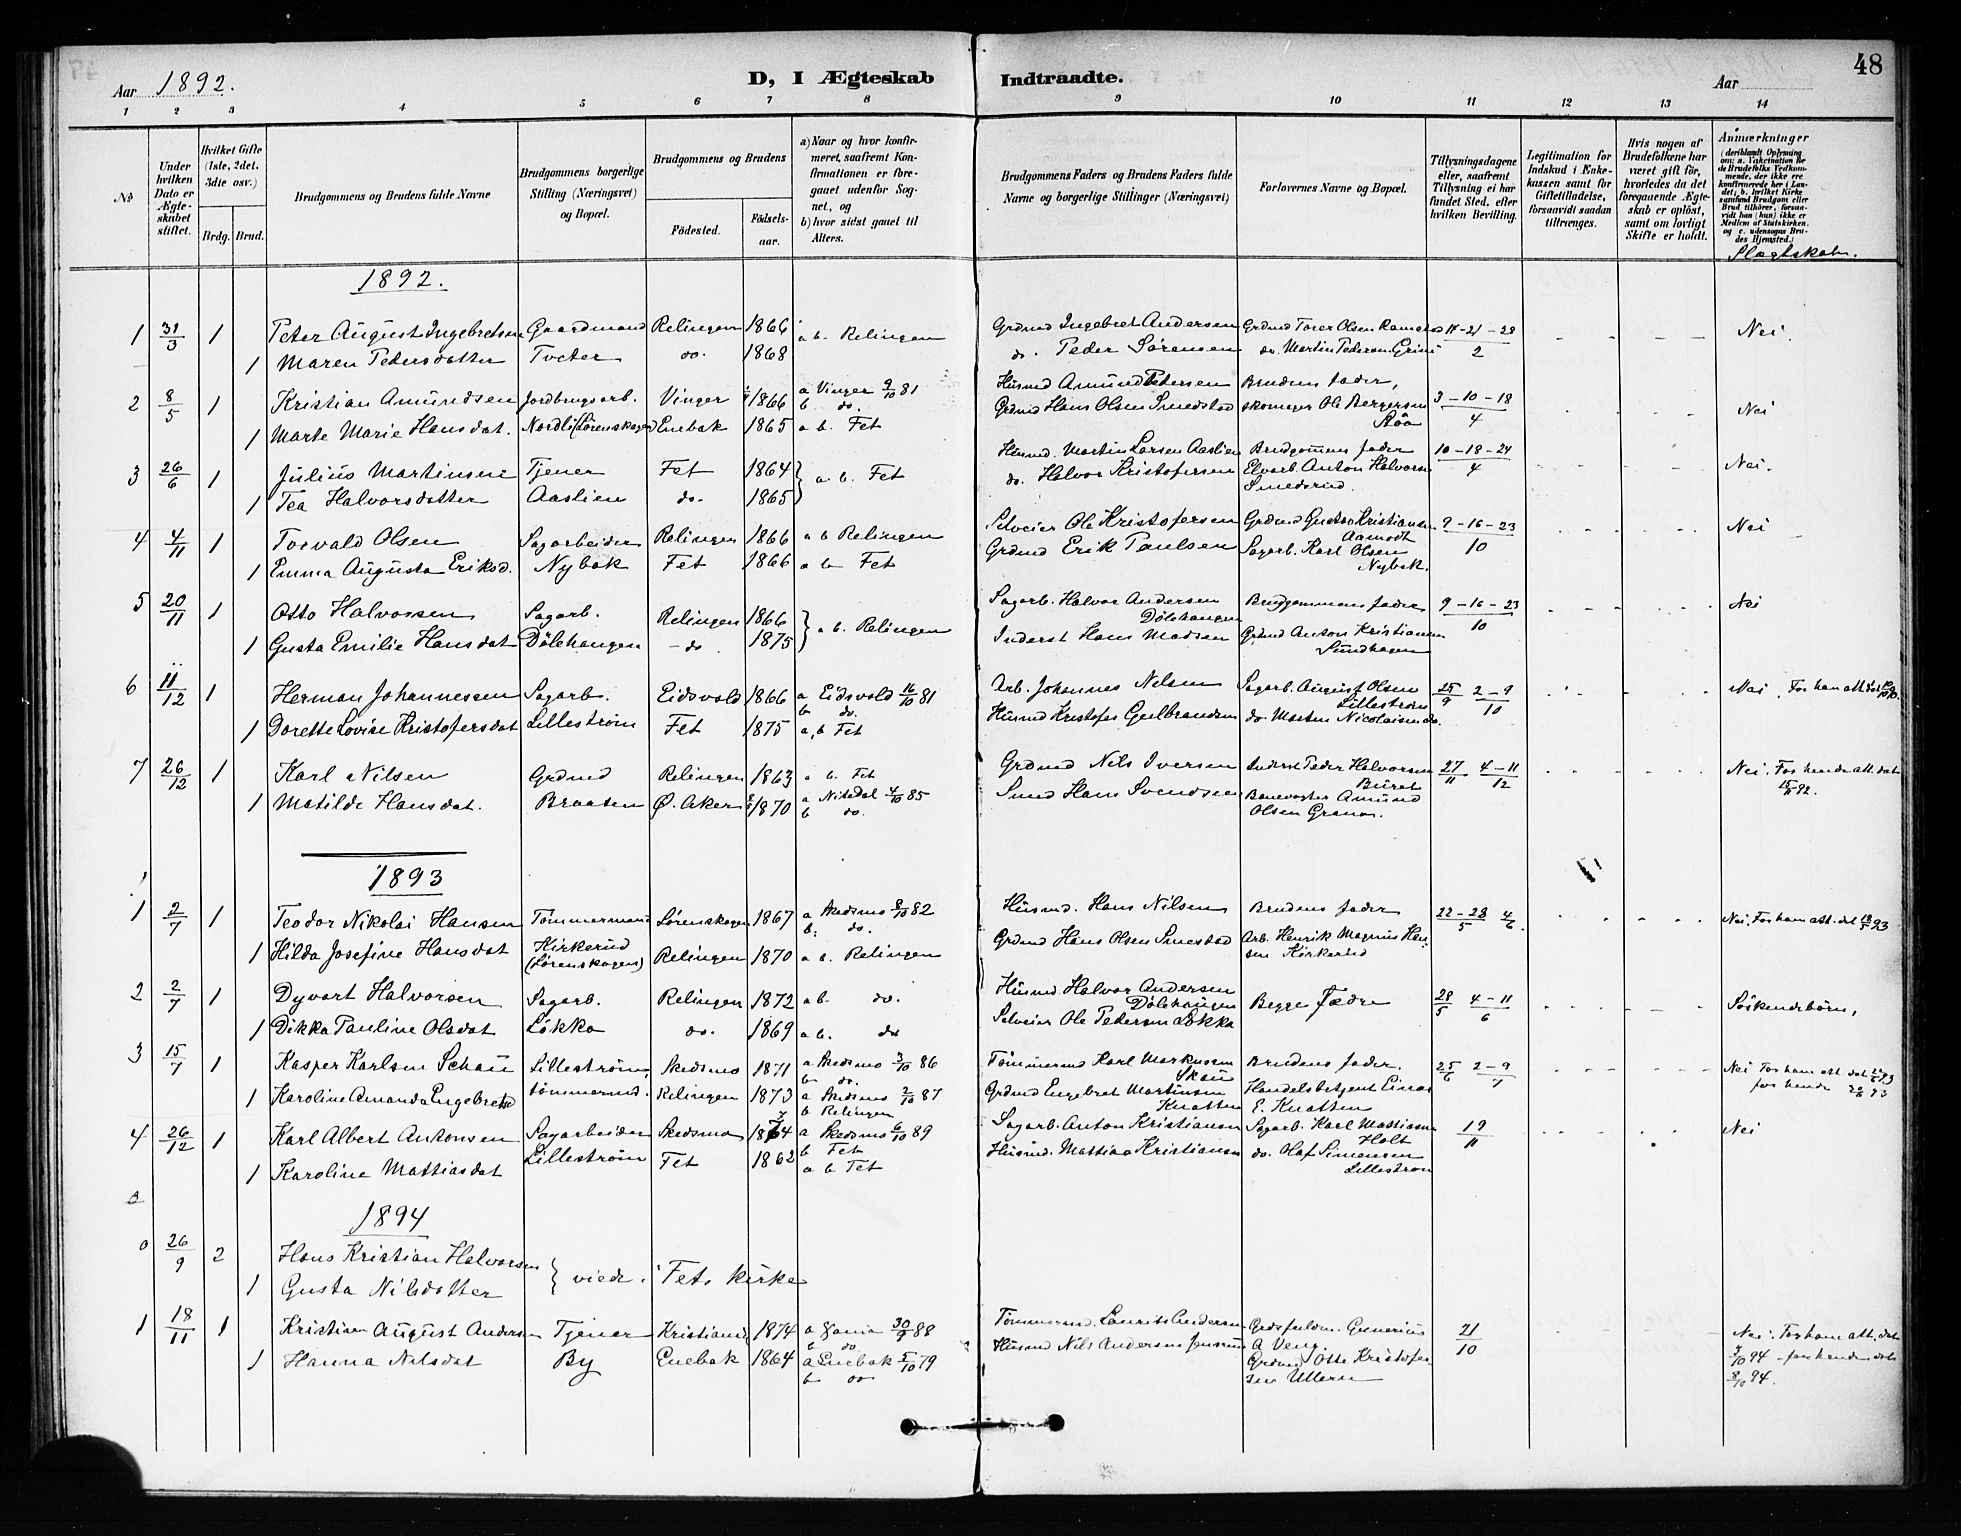 48
Aar 1892.
D, I Ægteskab Indtraadte.
Aar
1 2 3 4 5 6 7 8 9 10 11 12 13 14
No
Under hvilken Dato er Ægteskabet stiftet.
Hvilket Gifte (1ste, 2det, 3die osv.)
Brdg. Brud.
Brudgommens og Brudens fulde Navne
Brudgommens borgerlige Stilling (Næringsvei) og Bopæl.
Brudgommens og Brudens
Fødested.
Fødselsaar.
a) Naar og hvor konfirmeret, saafremt Konfirmationen er foregaaet udenfor Sognet, og
b) hvor sidst gaaet til Alters.
Brudgommens Faders og Brudens Faders fulde Navne og borgerlige Stillinger (Næringsvei)
Forlovernes Navne og Bopæl.
Tillysningsdagene eller, saafremt Tillysning ei har fundet Sted, efter hvilken Bevilling.
Legitimation for Indskud i Enkekassen samt for Giftetilladelse, forsaavidt saadan tiltrænges.
Hvis nogen af Brudefolkene har været gift før, hvorledes da det foregaaende Ægteskab er opløst, samt om lovligt Skifte er holdt.
Anmærkninger
(deriblandt Oplysning om: a. Vaccination for de Brudefolks Vedkommende, der ikke ere konfirmerede her i Landet; b. hvilket Kirkesamfund Brudgom eller Brud tilhører, forsaavidt han (hun) ikke er Medlem af Statskirken, og c. udensogns Brudes Hjemsted.)
Slægtskab.
1892.
1 31/3 1 Peter August Ingebretsen Gaardmand Relingen 1866 a b. Relingen Grdmd Ingebret Andersen Grdmd Torer Olsen Ramstad 14-21-28/2 Nei.
1 Maren Pedersdatter Tveter do. 1868 do. Peder Sørensen do. Martin Pedersen Grini
2 8/5 1 Kristian Amundsen Jordbrugsarb. Vinger 1866 a Vinger 9/10 81 b do. Husmd Amund Petersen Brudens fader, 3-10-18/4 Nei
1 Marte Marie Hansdat. Nordli (Lørenskogen) Enebak 1865 a b. Fet Grdmd Hans Olsen Smedstad skomager Ole Bergersen Støa
3 26/6 1 Julius Martinsen Tjener Fet 1864 a b. Fet Husmd. Martin Larsen Aaslien Brudgommens fader 10-18-24/4 Nei.
1 Tea Halvorsdatter Aaslien do. 1865 do. Halvor Kristofersen Elvarb. Anton Halvorsen Smedsrud.
4 4/11 1 Torvald Olsen Sagarbeider Relingen 1866 a b Relingen Selveier Ole Kristofersen Grdmd Gustav Kristiansen Aamodt 9-16-23/10 Nei
1 Emma Augusta Eriksd. Nybak Fet 1866 a b Fet Grdmd Erik Paulsen Sagarb. Karl Olsen Nybak.
5 20/11 1 Otto Halvorsen Sagarb. Relingen 1866 a b. Relingen Sagarb. Halvor Andersen Dølehaugen Brudgommens fader 9-16-23/10 Nei
1 Gusta Emilie Hansdat Dølehaugen do 1875 Inderst Hans Madsen Grdmd Anton Kristiansen Sundhagen
6 11/12 1 Herman Johannessen Sagarb. Eidsvold 1866 a Eidsvold 16/10 81 b do. Arb. Johannes Nelsen Sagarb. August Olsen Lillestrøm 25/9 2-9/10 Nei. For ham att. dat
1 Dorette Lovise Kristofersdat Lillestrøm Fet 1875 a, b Fet Husmd Kristofer Gulbrandsen do. Morten Nicolaisen do.
7 26/12 1 Karl Nilsen Grdmd Relingen 1863 a b. Fet Grdmd Nils Iversen Inderst Peder Halvorsen Buret 27/11 4-11/12 Nei. For hende att. dat 92.
1 Matilde Hansdat. Braaten Ø. Aker 1870 a Nitedal 4/10 85 b do. Smed Hans Svendsen Banevogter Amund Olsen Granas.
1893
1 2/7 1 Teodor Nikolai Hansen Tømmermand Lørenskogen 1867 a Skedsmo 8/10 82 b: do. Husmd. Hans Nilsen Brudens fader 22-28/5 4/6. Nei. For ham att. dat 18/5 93
1 Hilda Josefine Hansdat Kirkerud (Lørenskogen) Relingen 1870 a b. Relingen Grdmd Hans Olsen Smestad Arb. Henrik Magnus Hansen Kirkerud
2 2/7 1 Dyvart Halvorsen Sagarb. Relingen 1872 a b. do. Husmd Halvor Andersen Dølehaugen Begge Fædre 28/5 4-11/6 Søskendebørn,
1 Dikka Pauline Olsdat Løkka do. 1869 a b. do Selveier Ole Pedersen Løkka
3 15/7 1 Kasper Karlsen Schau Lillestrøm, Skedsmo 1871 a Skedsmo 3/10 86 b do. Tømmermd Karl Markussen Skau Brudens fader. 25/6 2-9/7 Nei For ham att. dat 93
1 Karoline Amanda Engebretsd tømmermd. Relingen 1873 a Skedsmo 2/10 87 b Relingen Grdmd Engebret Martinsen Knatten Handelsbetjent Einar E. Knatten for hende 93
4 26/12 1 Karl Albert Antonsen Sagarbeider Skedsmo 1874 a Skedsmo 6/10 89 b Fet Sagarb. Anton Kristiansen Sagarb. Karl Mattiasen Holt 19/11 Nei
1 Karoline Mattiasdat Lillestrøm Fet 1862 a b Fet Husmd. Mattias Kristiansen do. Olaf Simensen Lillestrøm
1894
0 26/9 2 Hans Kristian Halvorsen viede i Fets kirke
1 Gusta Nilsdatter
1 18/11 1 Kristian August Andersen Tjener Kristiania 1874 a 30/9 88 b do Tømmermd. Laurits Andersen Grdsfuldm. Gunerius A Veng. 21/10 Nei. For ham att. dat 94 - for hende dat
1 Hanna Nilsdat By Enebak 1864 a Enebak 5/10 79 b do Husmd Nils Andersen Grdmd Otto Kristofersen Ullern 8/10 94.